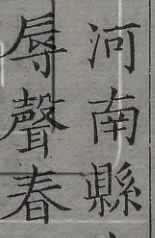 河南縣
辱聲春